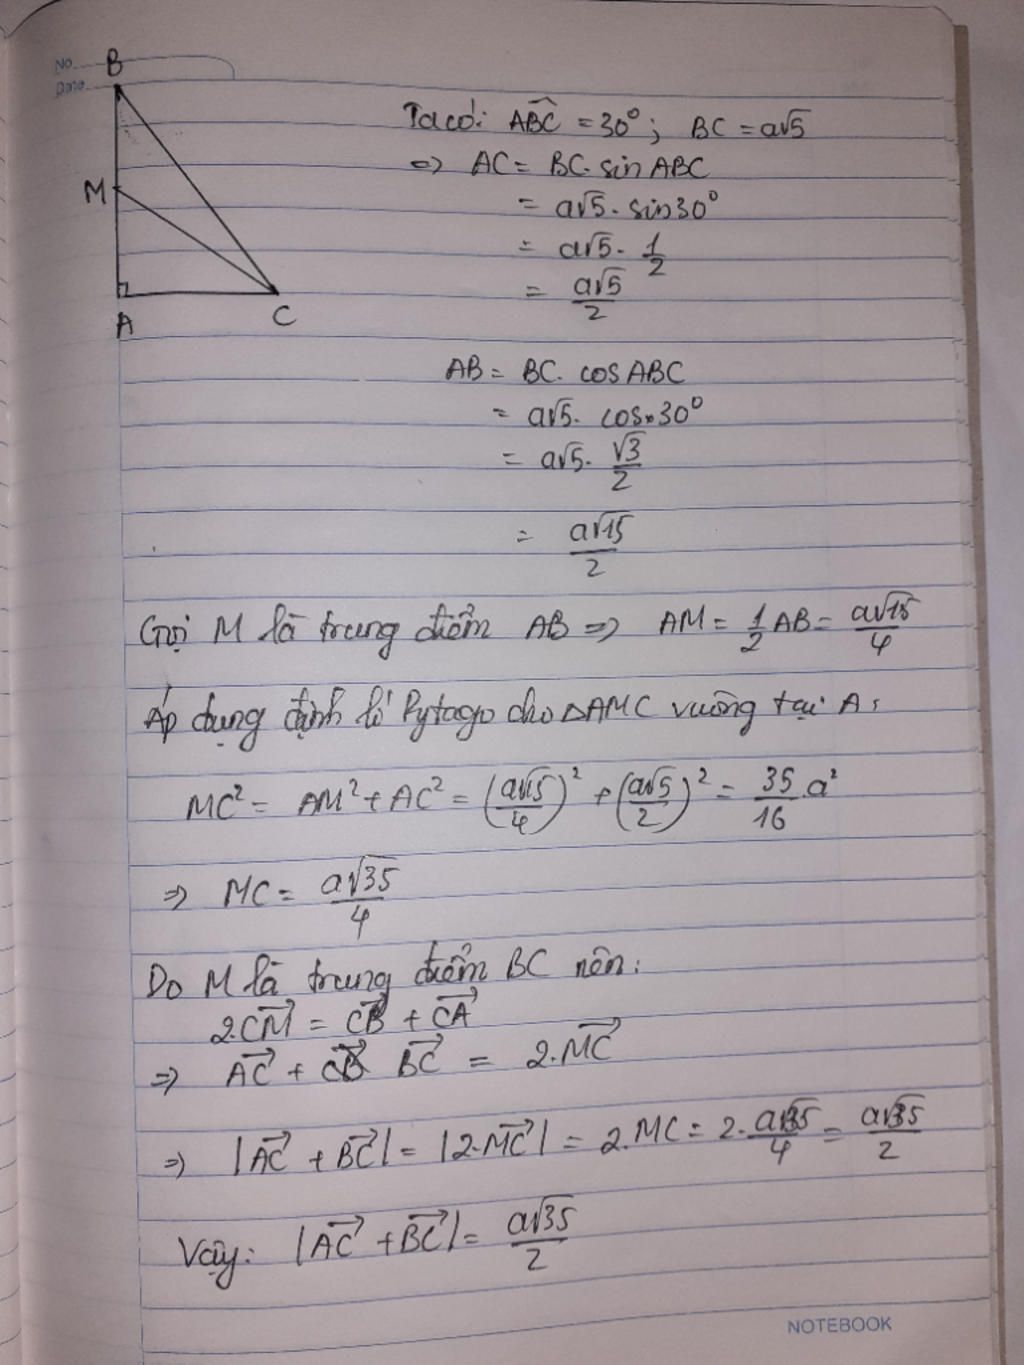 No.
Date
B
M
A
C
Ta có: ABC = 30°; BC = a√5
=> AC = BC. sin ABC
= a√5. sin30°
= a√5. 1/2
= a√5/2
AB = BC. cos ABC
= a√5. cos 30°
= a√5. √3/2
= a√15/2
Gọi M là trung điểm AB => AM = 1/2 AB = a√15/4
Áp dụng định lí Pytago cho ΔAMC vuông tại A:
MC² = AM² + AC² = (a√15/4)² + (a√5/2)² = 35/16 a²
=> MC = a√35/4
Do M là trung điểm BC nên:
2.CM→ = CB→ + CA→
=> AC→ + BC→ = 2.MC→
=> |AC→ + BC→| = |2.MC→| = 2.MC = 2. a√35/4 = a√35/2
Vậy: |AC→ + BC→| = a√35/2
NOTEBOOK